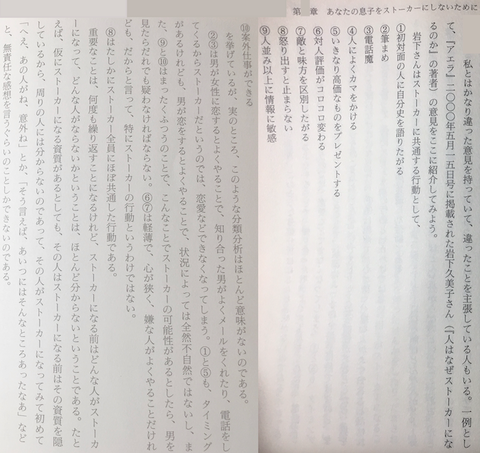 第　章　あなたの息子をストーカーにしないために
私とはかなり違った意見を持っていて、違ったことを主張している人もいる。一例とし
て、『アエラ』二〇〇〇年五月一五日号に掲載された岩下久美子さん（『人はなぜストーカーにな
るのか』の著者）の意見をここに紹介してみよう。
岩下さんはストーカーに共通する行動として、
①初対面の人に自分史を語りたがる
②筆まめ
③電話魔
④人によくカマをかける
⑤いきなり高価なものをプレゼントする
⑥対人評価がコロコロ変わる
⑦敵と味方を区別したがる
⑧怒り出すと止まらない
⑨人並み以上に情報に敏感
⑩案外仕事ができる
を挙げているが、実のところ、このような分類分析はほとんど意味がないのである。
②③は男が女性に恋するとよくやることで、知り合った男がよくメールをくれたり、電話をし
てくるからストーカーだというのでは、恋愛などできなくなってしまう。①と⑤も、タイミング
があるけれども、男が恋をするとよくやることで、状況によっては全然不自然ではないし、ま
た、⑨と⑩はまったくふつうのことで、こんなことでストーカーの可能性があるとしたら、男を
見たらだれでも疑わなければならない。⑥⑦は軽薄で、心が狭く、嫌な人がよくやることだけれ
ども、だからと言って、特にストーカーの行動というわけではない。
⑧はたしかにストーカー全員にほぼ共通した行動である。
重要なことは、何度も繰り返すことになるけれど、ストーカーになる前はどんな人がストーカ
ーになって、どんな人がならないかということは、ほとんど分からないということである。たと
えば、仮にストーカーになる資質があるとしても、その人はストーカーになる前はその資質を隠
しているから、周りの人には分からないのであって、その人がストーカーになってみて初めて
「へえ、あの人がね、意外ね」とか、「そう言えば、あいつにはそんなところあったなあ」など
と、無責任な感想を言うぐらいのことしかできないのである。